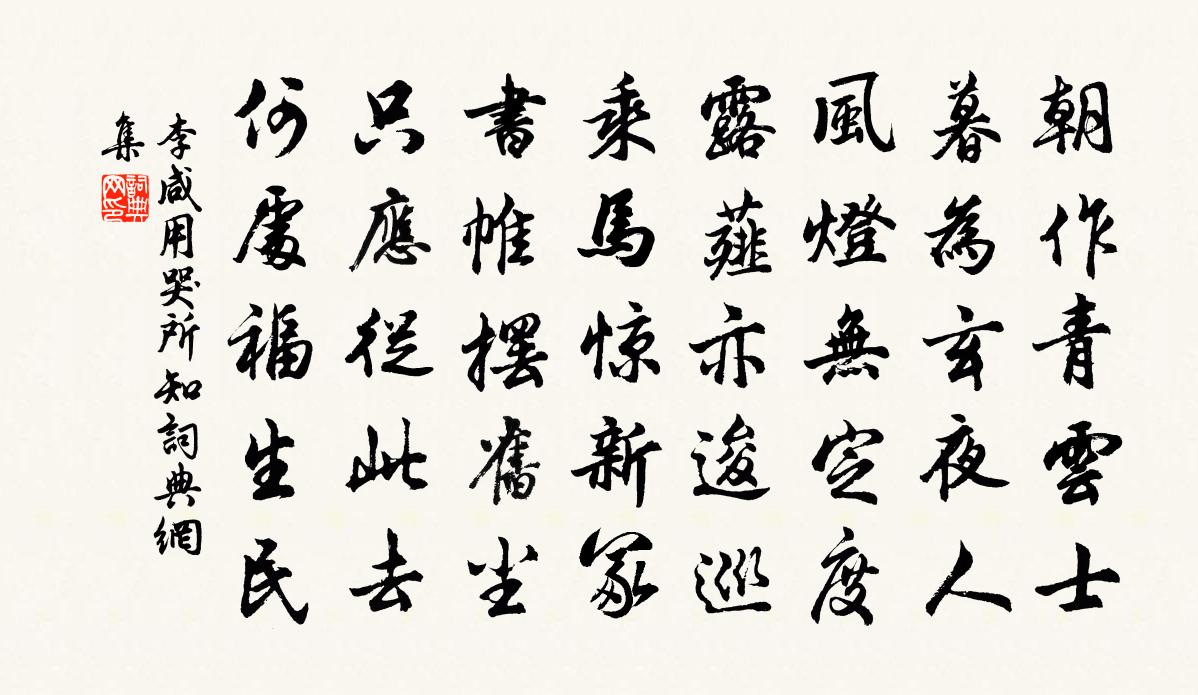 朝作青雲士
暮為玄夜人
風燈無定度
露薤亦逡巡
乘馬惊新冢
書帷擺舊尘
只應從此去
何處福生民
李咸用哭所知詞典網
集
詞典网印